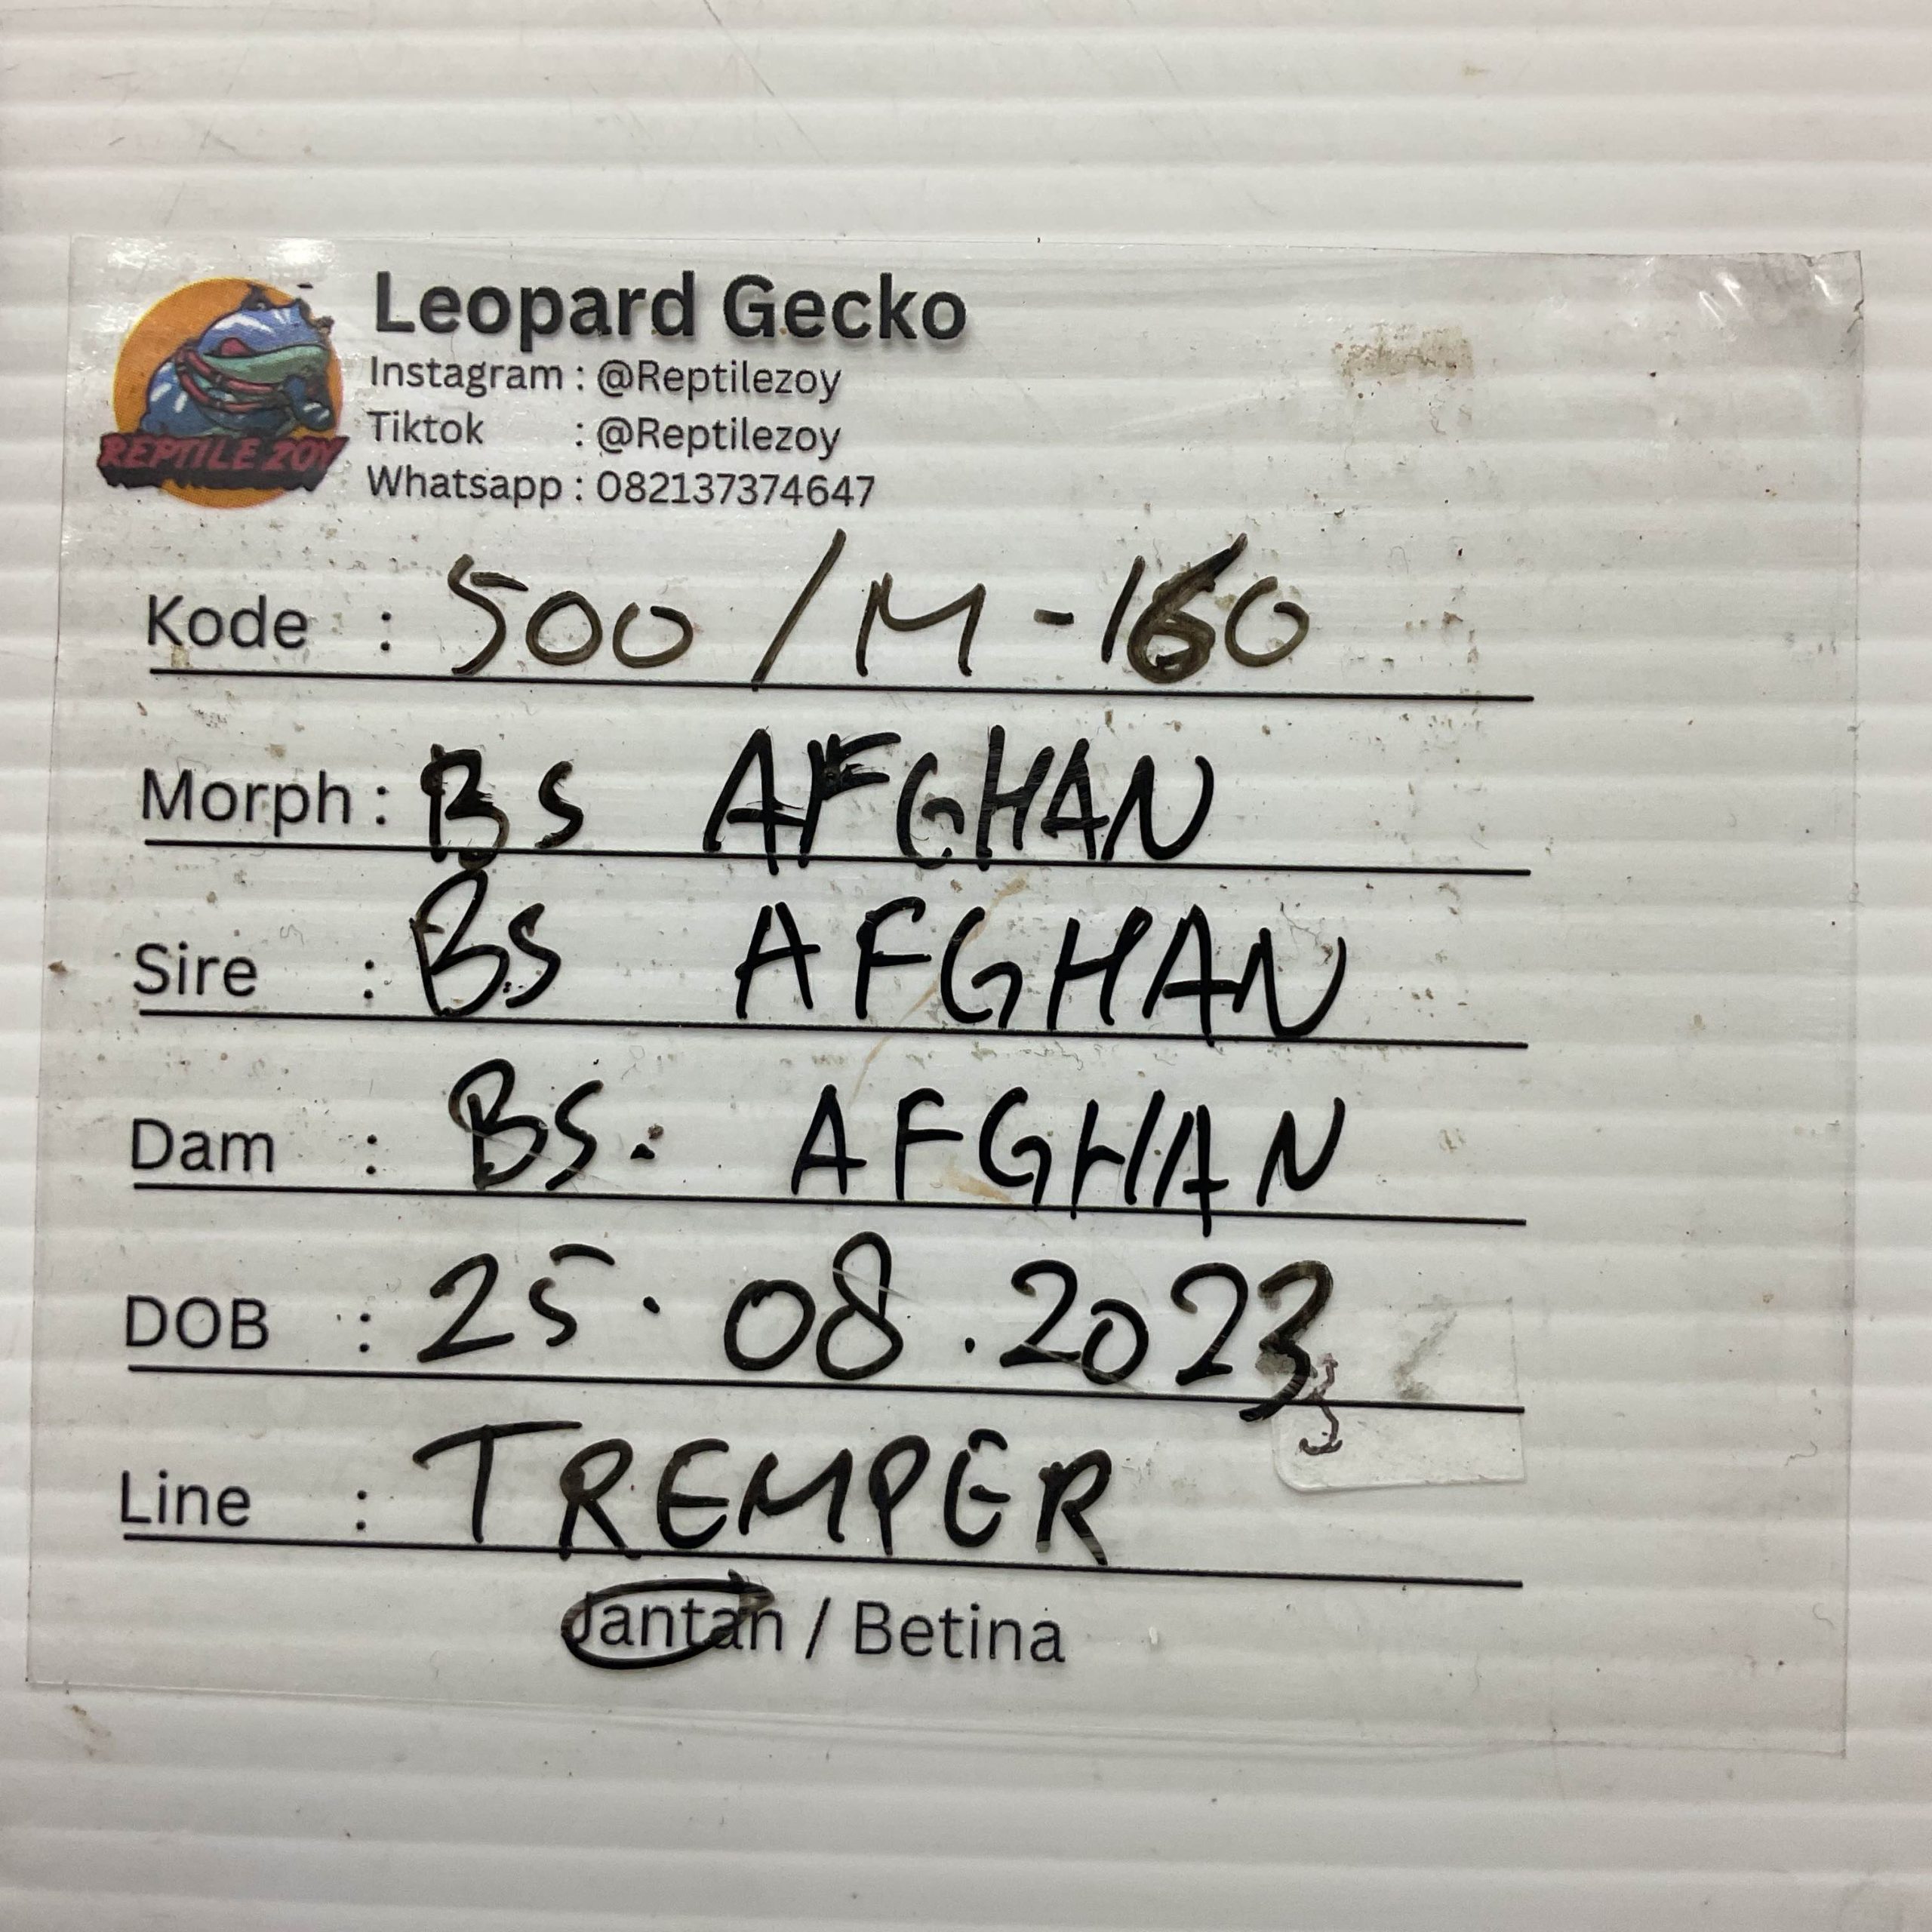 REPTILE ZOY
Leopard Gecko
Instagram : @Reptilezoy
Tiktok : @Reptilezoy
Whatsapp : 082137374647
Kode : 500 / M - 160
Morph : BS AFGHAN
Sire : BS AFGHAN
Dam : BS. AFGHAN
DOB : 25 . 08 . 2023
Line : TREMPER
Jantan / Betina